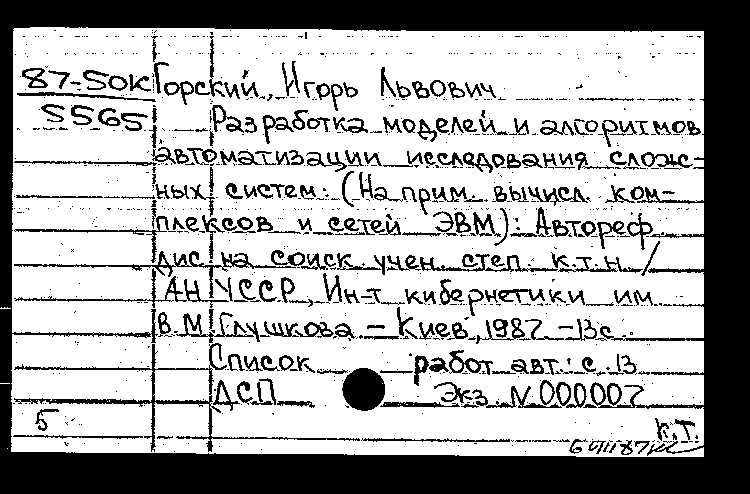 87-50к Горский, Игорь Львович
5565 Разработка моделей и алгоритмов
автоматизации исследования слож-
ных систем: (На прим. вычисл. ком-
плексов и сетей ЭВМ): Автореф.
дис. на соиск. учен. степ. к.т.н. /
АН УССР, Ин-т кибернетики им.
В.М. Глушкова – Киев, 1987. – 13 с.
Список работ авт.: с. 13
ДСП Экз. N 000007
5 К.Т.